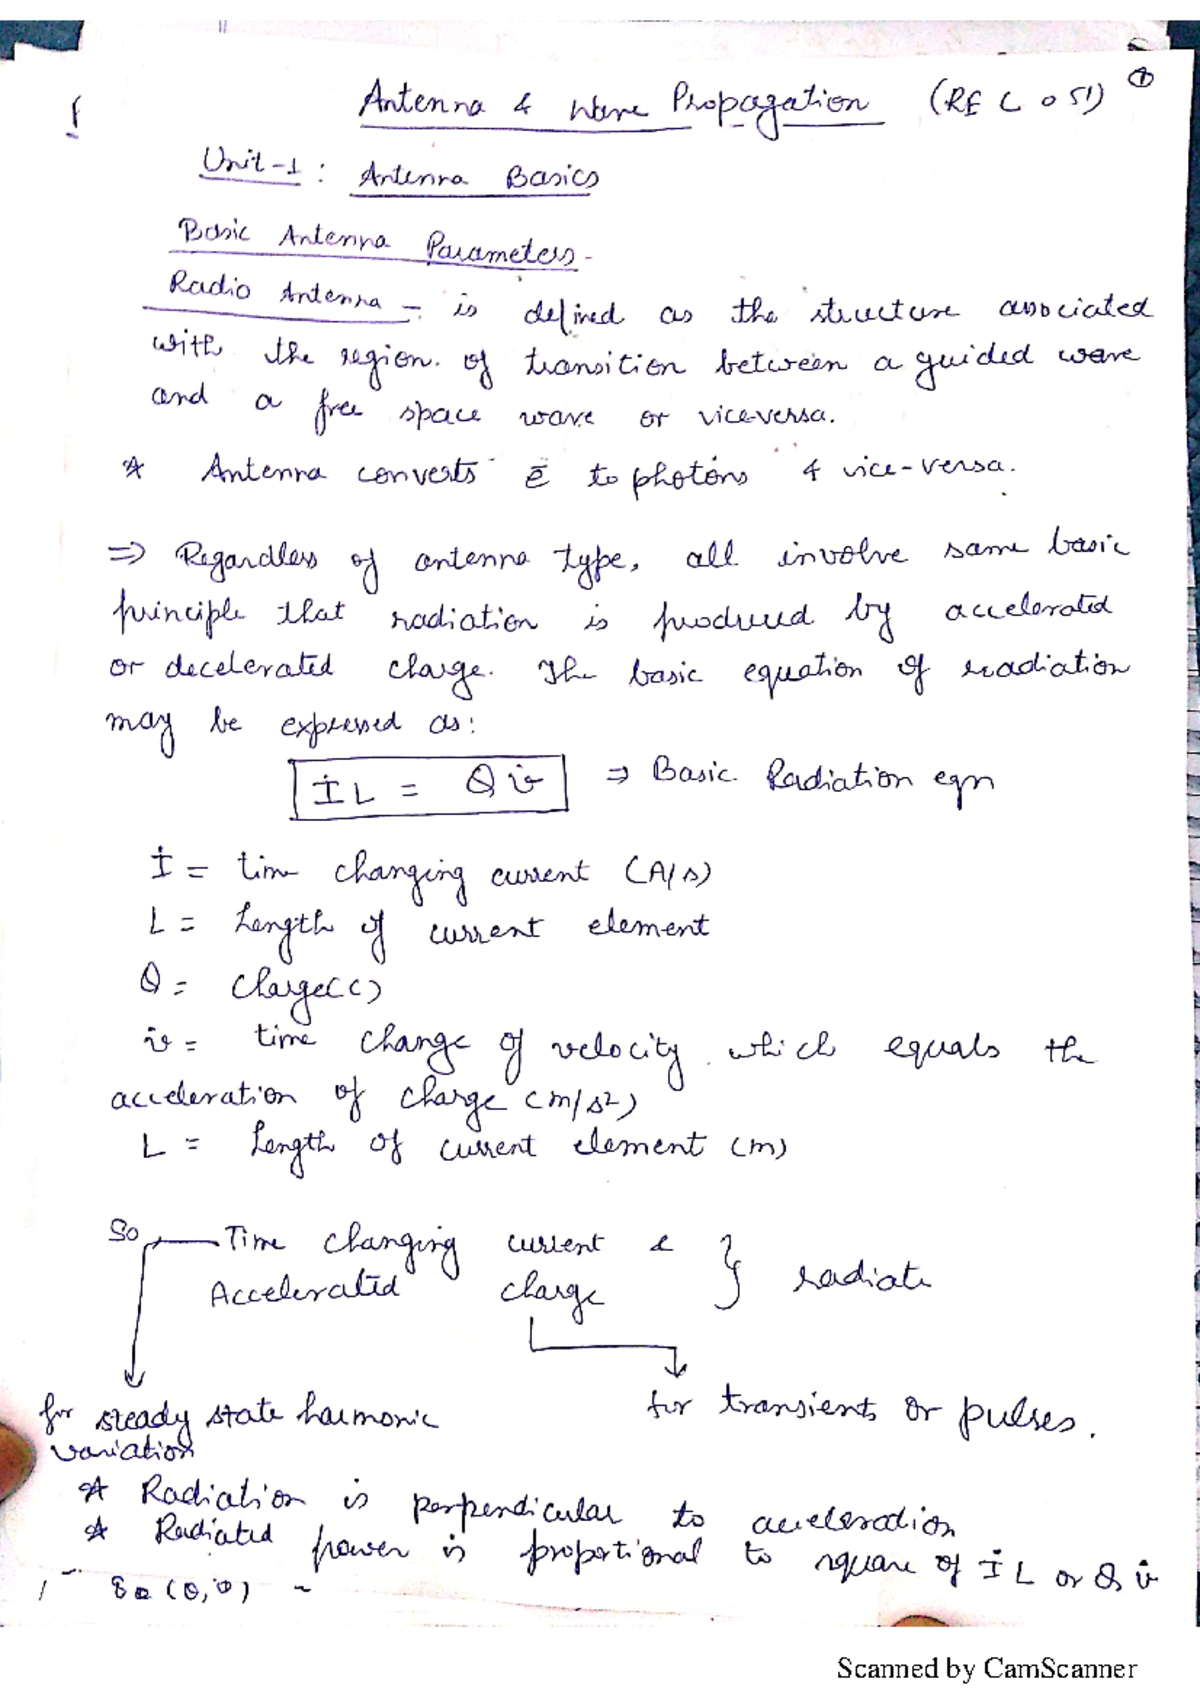 ①
Antenna & Wave Propagation (REC 051)
Unit-1 : Antenna Basics
Basic Antenna Parameters -
Radio Antenna - is defined as the structure associated
with the region of transition between a guided wave
and a free space wave or vice-versa.
* Antenna converts ē to photons & vice-versa.
⇒ Regardless of antenna type, all involve same basic
principle that radiation is produced by accelerated
or decelerated charge. The basic equation of radiation
may be expressed as:
İL = Q v̇ ⇒ Basic Radiation eqn
İ = time changing current (A/s)
L = Length of current element
Q = Charge(C)
v̇ = time change of velocity which equals the
acceleration of charge (m/s²)
L = Length of current element (m)
So Time changing current &
Accelerated charge } radiate
for steady state harmonic
variation
for transients or pulses.
* Radiation is perpendicular to acceleration
* Radiated power is proportional to square of İL or Q v̇
Scanned by CamScanner